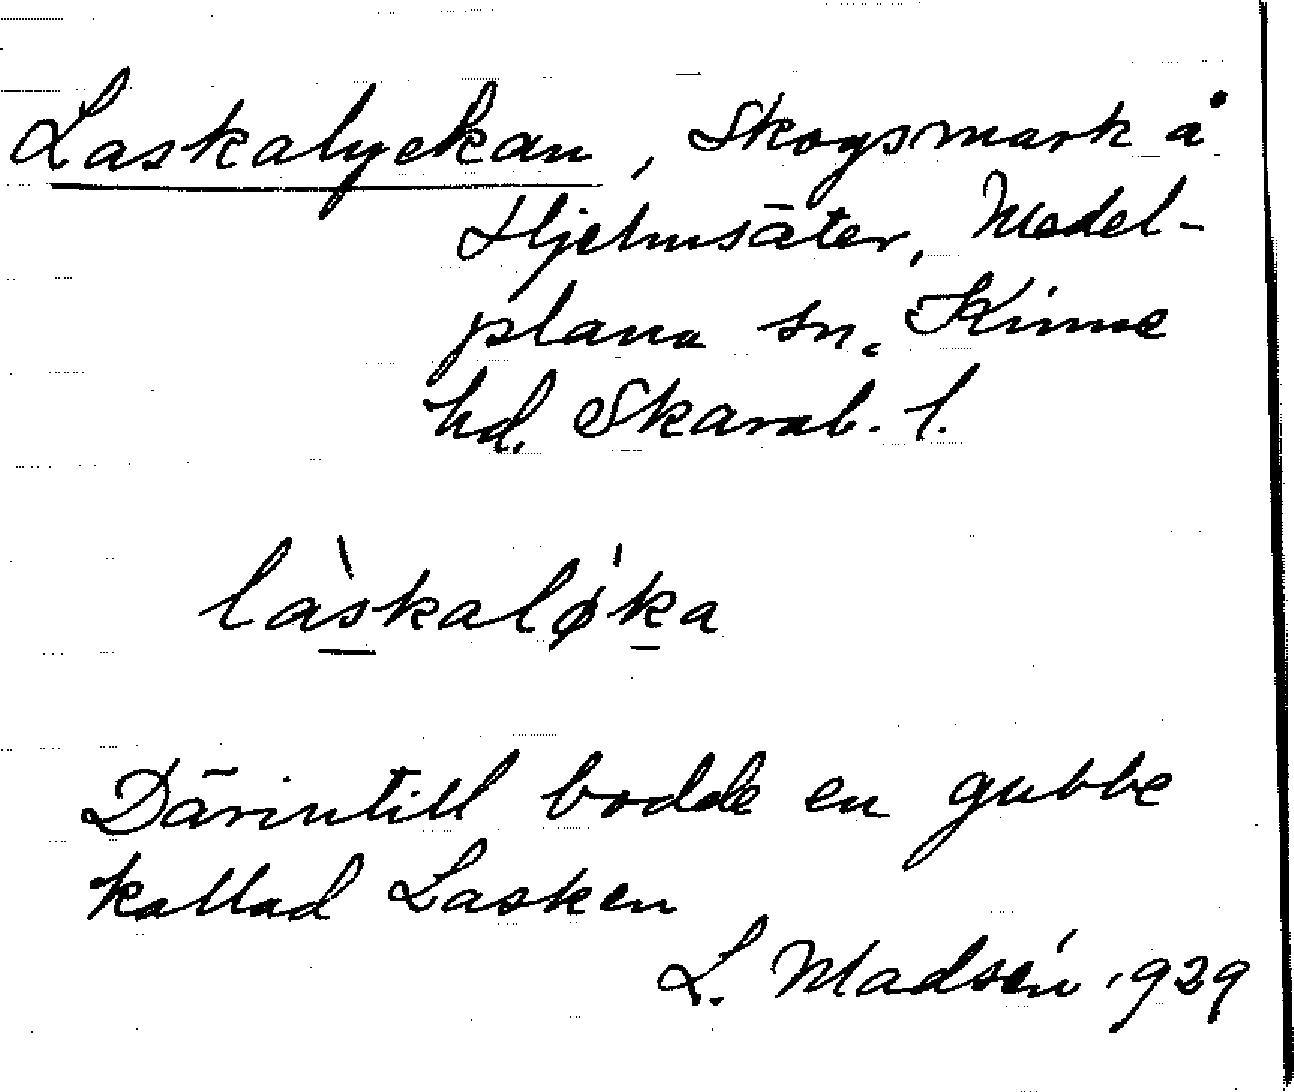 Laskalyckan, Skogsmark å
Hjelmsäter, Medel-
plana sn. Kinne
hd. Skarab. l.
làskalø'ka
Därintill bodde en gubbe
kallad Lasken
L. Madsén 1929